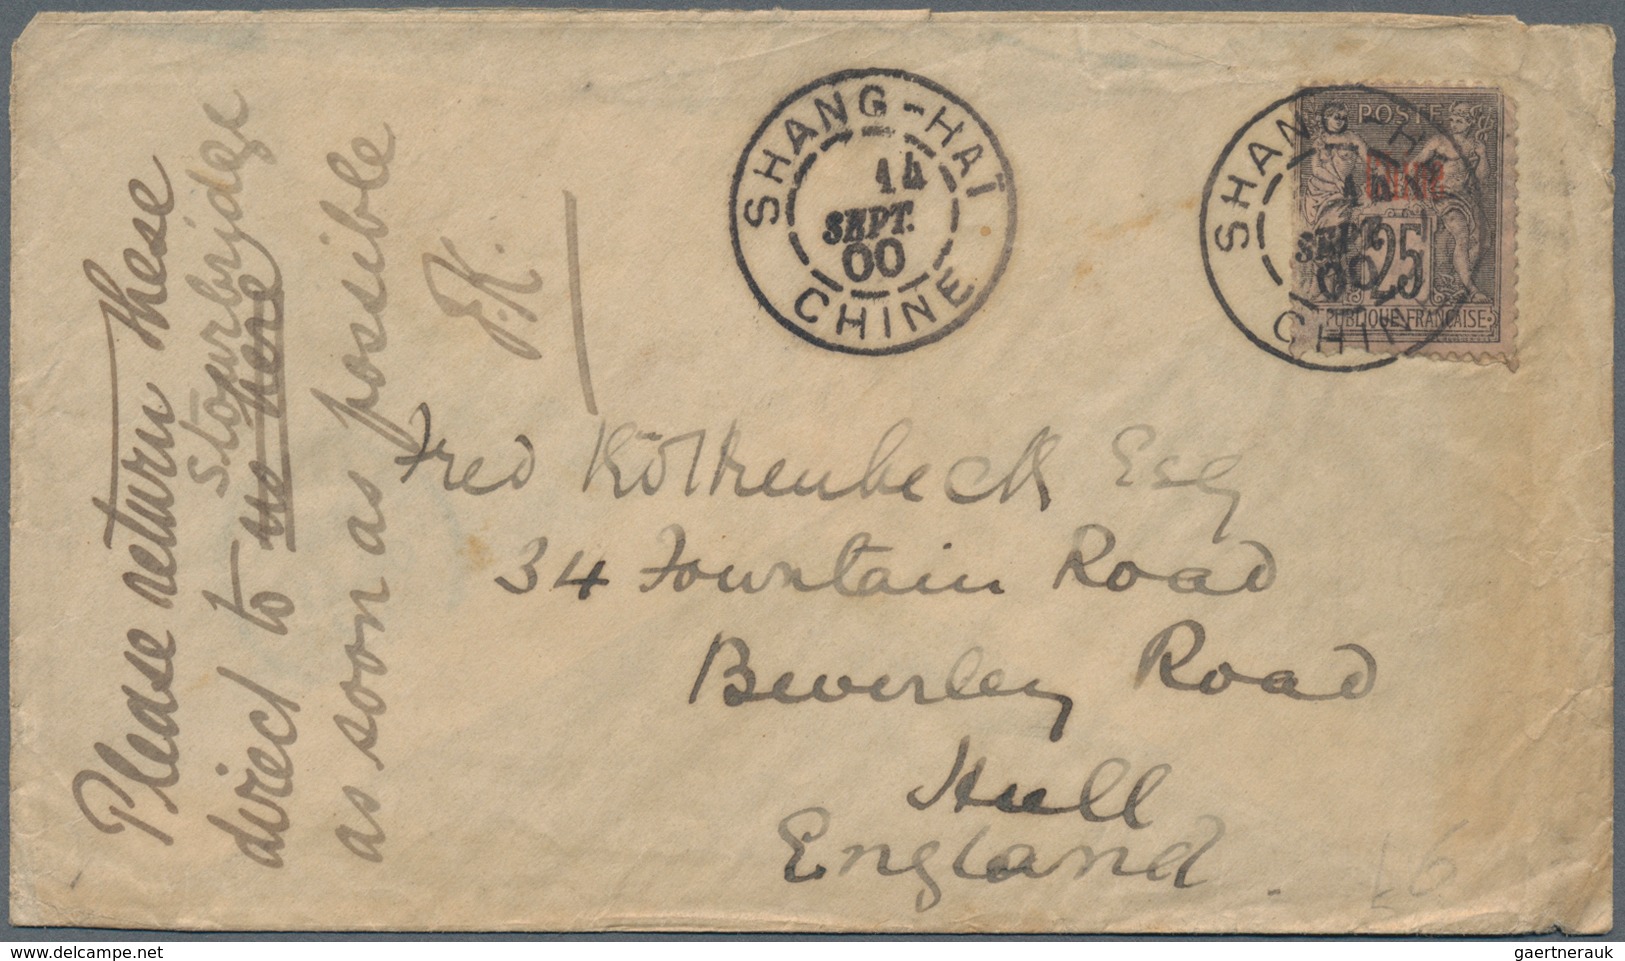 Please return these
Stourbridge
direct to us here
as soon as possible
F.K.
SHANG-HAÏ
14
SEPT.
00
CHINE
SHANG-HAÏ
14
SEPT.
00
CHINE
POSTE
Chine
25
REPUBLIQUE FRANÇAISE
Fred Kothenbeck Esq
34 Fountain Road
Beverley Road
Hull
England.
L6
www.delcampe.net
gaertnerauk